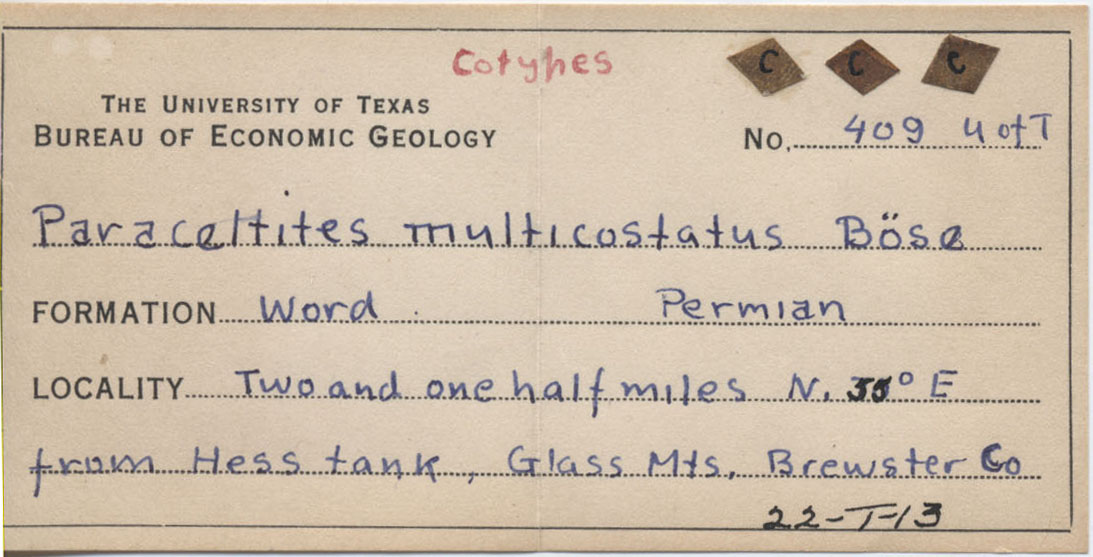 Cotypes
C C C
THE UNIVERSITY OF TEXAS
BUREAU OF ECONOMIC GEOLOGY
No. 409 U of T
Paraceltites multicostatus Böse
FORMATION Word Permian
LOCALITY Two and one half miles N. 55° E
from Hess tank, Glass Mts. Brewster Co
22-T-13